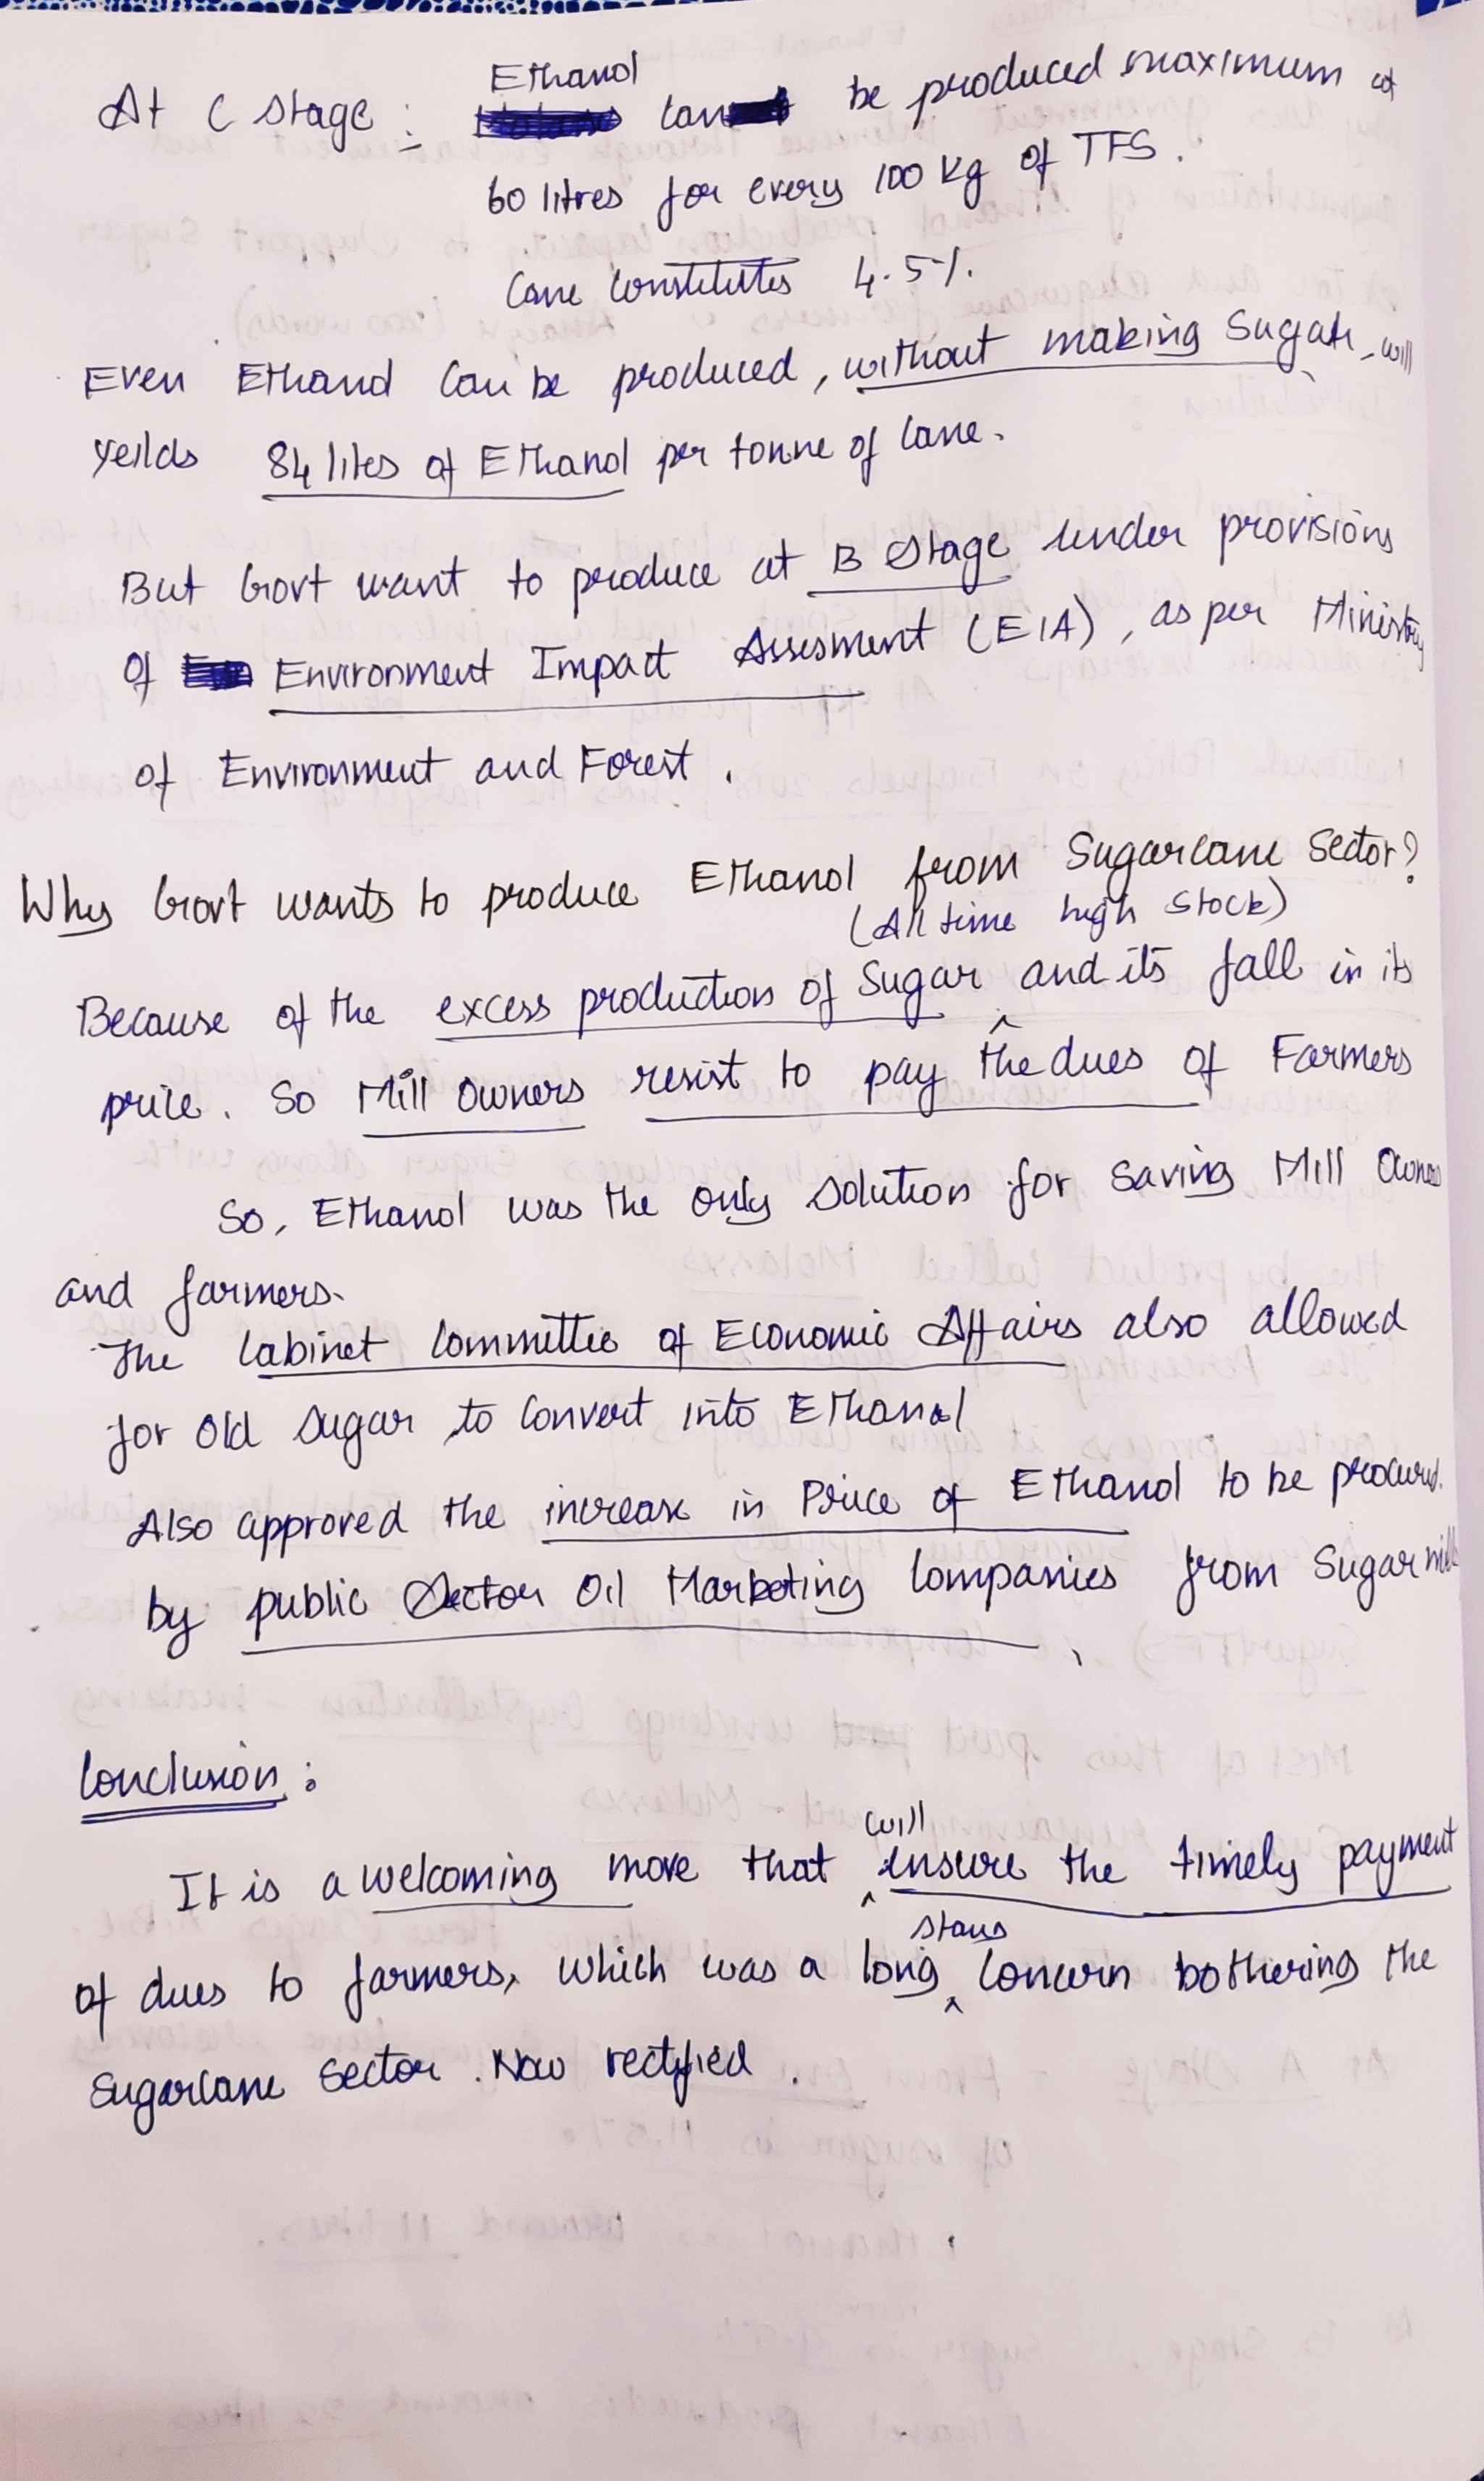 At C stage : Ethanol can be produced maximum at
60 litres for every 100 kg of TFS.
Cane constitutes 4.5%.
Even Ethanol can be produced, without making Sugar, will
yeilds 84 lites of Ethanol per tonne of cane.
But Govt want to produce at B stage under provisions
of Environment Impact Assesment (EIA), as per Ministry
of Environment and Forest.
Why Govt wants to produce Ethanol from Sugarcane Sector?
(All time high stock)
Because of the excess production of Sugar ^ and its fall in its
price. So Mill Owners resist to pay the dues of Farmers
So, Ethanol was the only solution for saving Mill Owners
and farmers.
The Cabinet Committee of Economic Affairs also allowed
for old sugar to convert into Ethanol
Also approved the increase in Price of Ethanol to be procured.
by public Sector Oil Marketing Companies from Sugar mills
Conclusion :
It is a welcoming move that will ensure the timely payment
of dues to farmers, which was a long stans concern bothering the
Sugarcane sector. Now rectified.